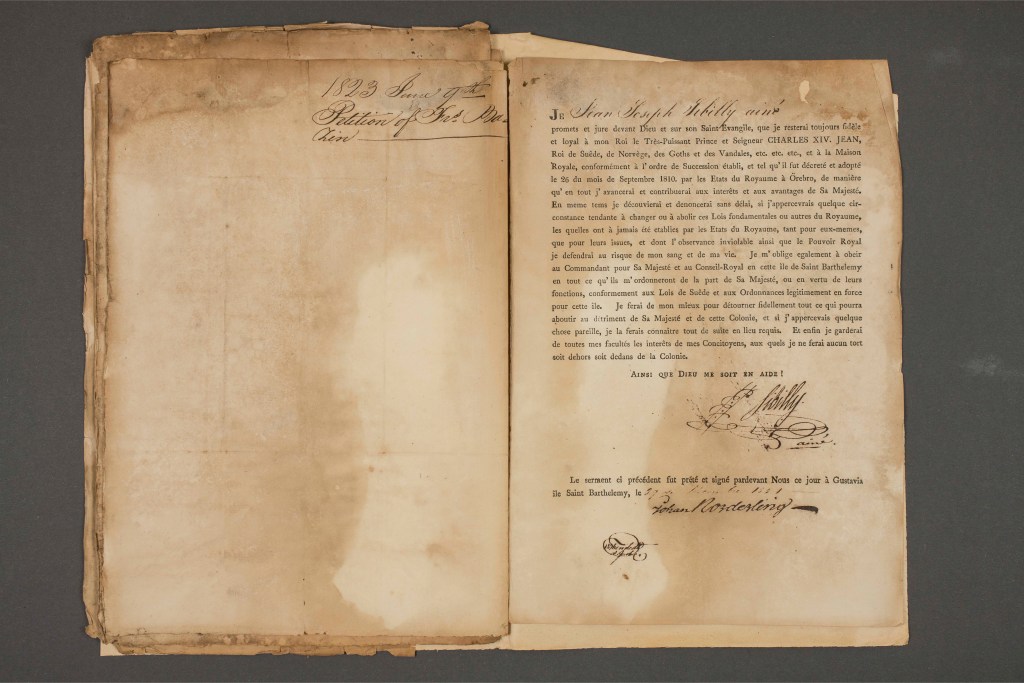 1823 June 9th
Petition of Frs Ba-
chin
JE Jean Joseph Sibilly ainé
promets et jure devant Dieu et sur son Saint Evangile, que je resterai toujours fidèle
et loyal à mon Roi le Très-Puissant Prince et Seigneur CHARLES XIV. JEAN,
Roi de Suède, de Norvège, des Goths et des Vandales, etc. etc. etc., et à la Maison
Royale, conformément à l'ordre de Succession établi, et tel qu'il fut décreté et adopté
le 26 du mois de Septembre 1810. par les Etats du Royaume à Örebro, de manière
qu'en tout j'avancerai et contribuerai aux interêts et aux avantages de Sa Majesté.
En meme tems je découvrierai et denoncerai sans délai, si j'appercevrais quelque cir-
constance tendante à changer ou à abolir ces Lois fondamentales ou autres du Royaume,
les quelles ont à jamais été etablies par les Etats du Royaume, tant pour eux-memes,
que pour leurs issues, et dont l'observance inviolable ainsi que le Pouvoir Royal
je defendrai au risque de mon sang et de ma vie. Je m'oblige egalement à obeir
au Commandant pour Sa Majesté et au Conseil-Royal en cette Ile de Saint Barthelemy
en tout ce qu'ils m'ordonneront de la part de Sa Majesté, ou en vertu de leurs
fonctions, conformement aux Lois de Suède et aux Ordonnances legitimement en force
pour cette ile. Je ferai de mon mieux pour détourner fidellement tout ce qui pourra
aboutir au détriment de Sa Majesté et de cette Colonie, et si j'appercevais quelque
chose pareille, je la ferais connaitre tout de suite en lieu requis. Et enfin je garderai
de toutes mes facultés les interêts de mes Concitoyens, aux quels je ne ferai aucun tort
soit dehors soit dedans de la Colonie.
AINSI QUE DIEU ME SOIT EN AIDE!
Sibilly
ainé.
Le serment ci précédent fut prété et signé pardevant Nous ce jour à Gustavia
ile Saint Barthelemy, le
Johan Norderling